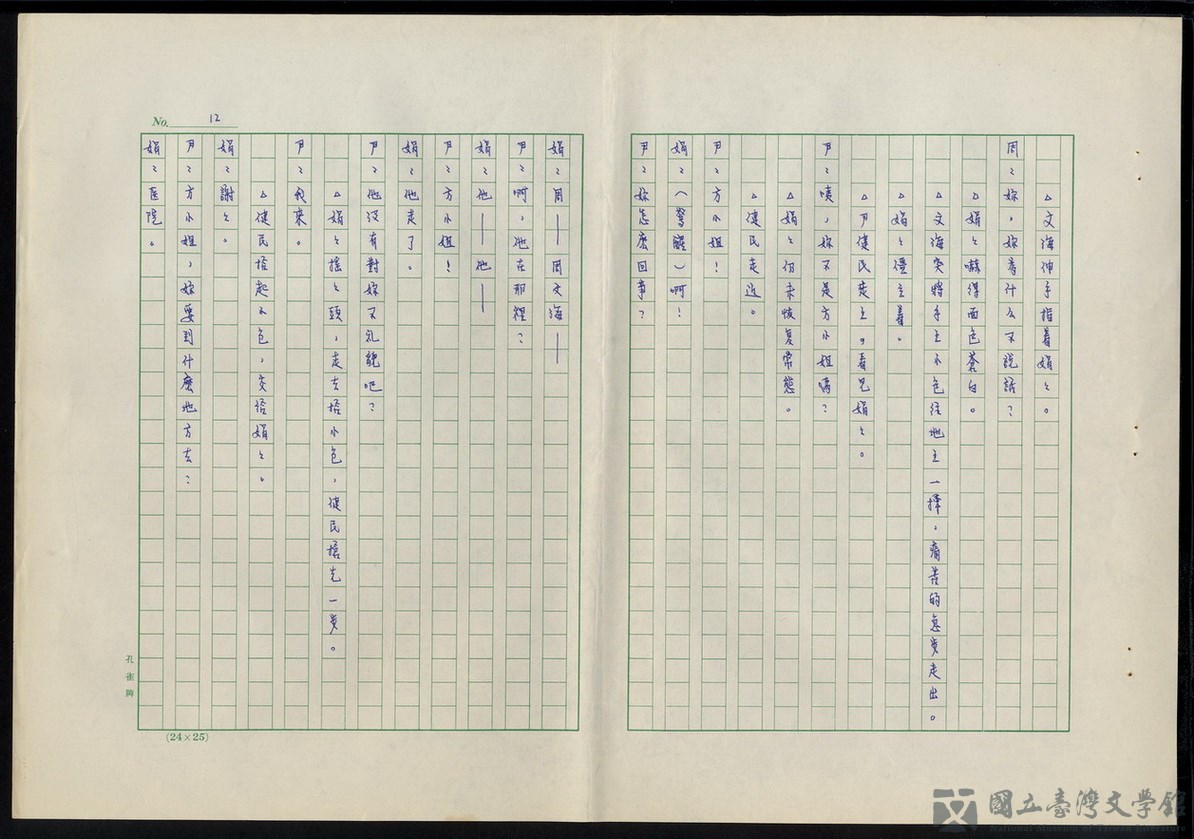 △文海伸手指着娟々。
周：妳，妳為什么不說話？
△娟々嚇得面色蒼白。
△文海突將手上小包往地上一摔，痛苦的急步走出。
△娟々僵立着。
△尹健民走上，看見娟々。
尹：咦，妳不是方小姐嗎？
△娟々仍未恢复常態。
△健民走近。
尹：方小姐！
娟：（驚醒）啊！
尹：妳怎麼回事？
No. 12
娟：周——周文海——
尹：啊，他在那裡？
娟：他——他——
尹：方小姐！
娟：他走了。
尹：他沒有對妳不礼貌吧？
△娟々搖々頭，走去拾小包，健民搶先一步。
尹：我來。
△健民拾起小包，交給娟々。
娟：謝々。
尹：方小姐，妳要到什麼地方去？
娟：医院。
孔雀牌
(24×25)
國立臺灣文學館
National Museum of Taiwan Literature